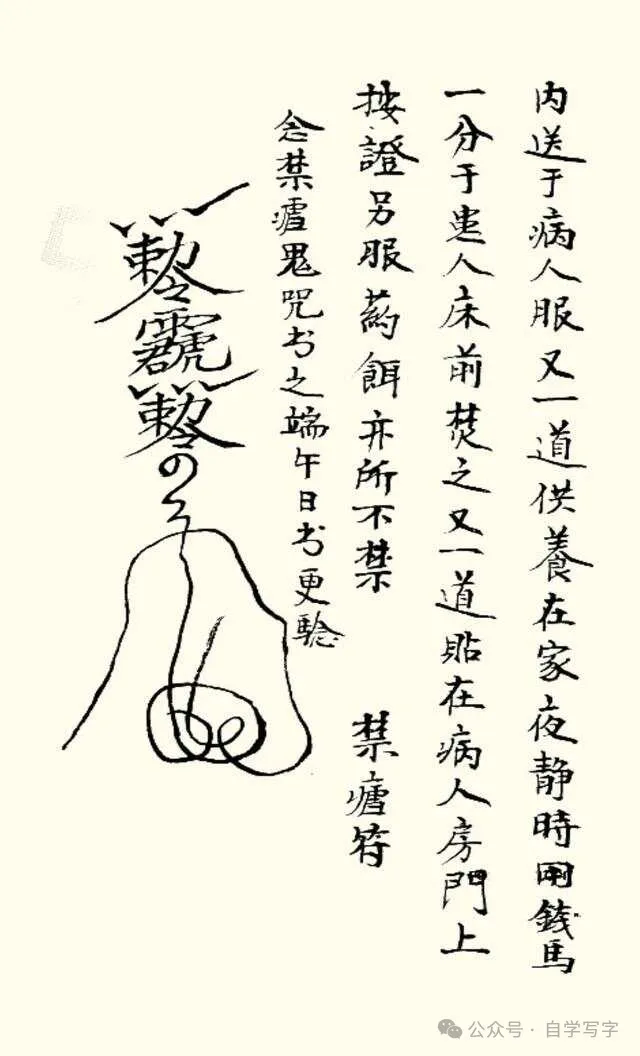 内送于病人服又一道供養在家夜静時用錢馬
一分于患人床前焚之又一道貼在病人房門上
按證另服药餌亦所不禁
禁瘧符
念禁瘧鬼咒书之端午日书更騐
敕令
敕令
公众号 · 自学写字